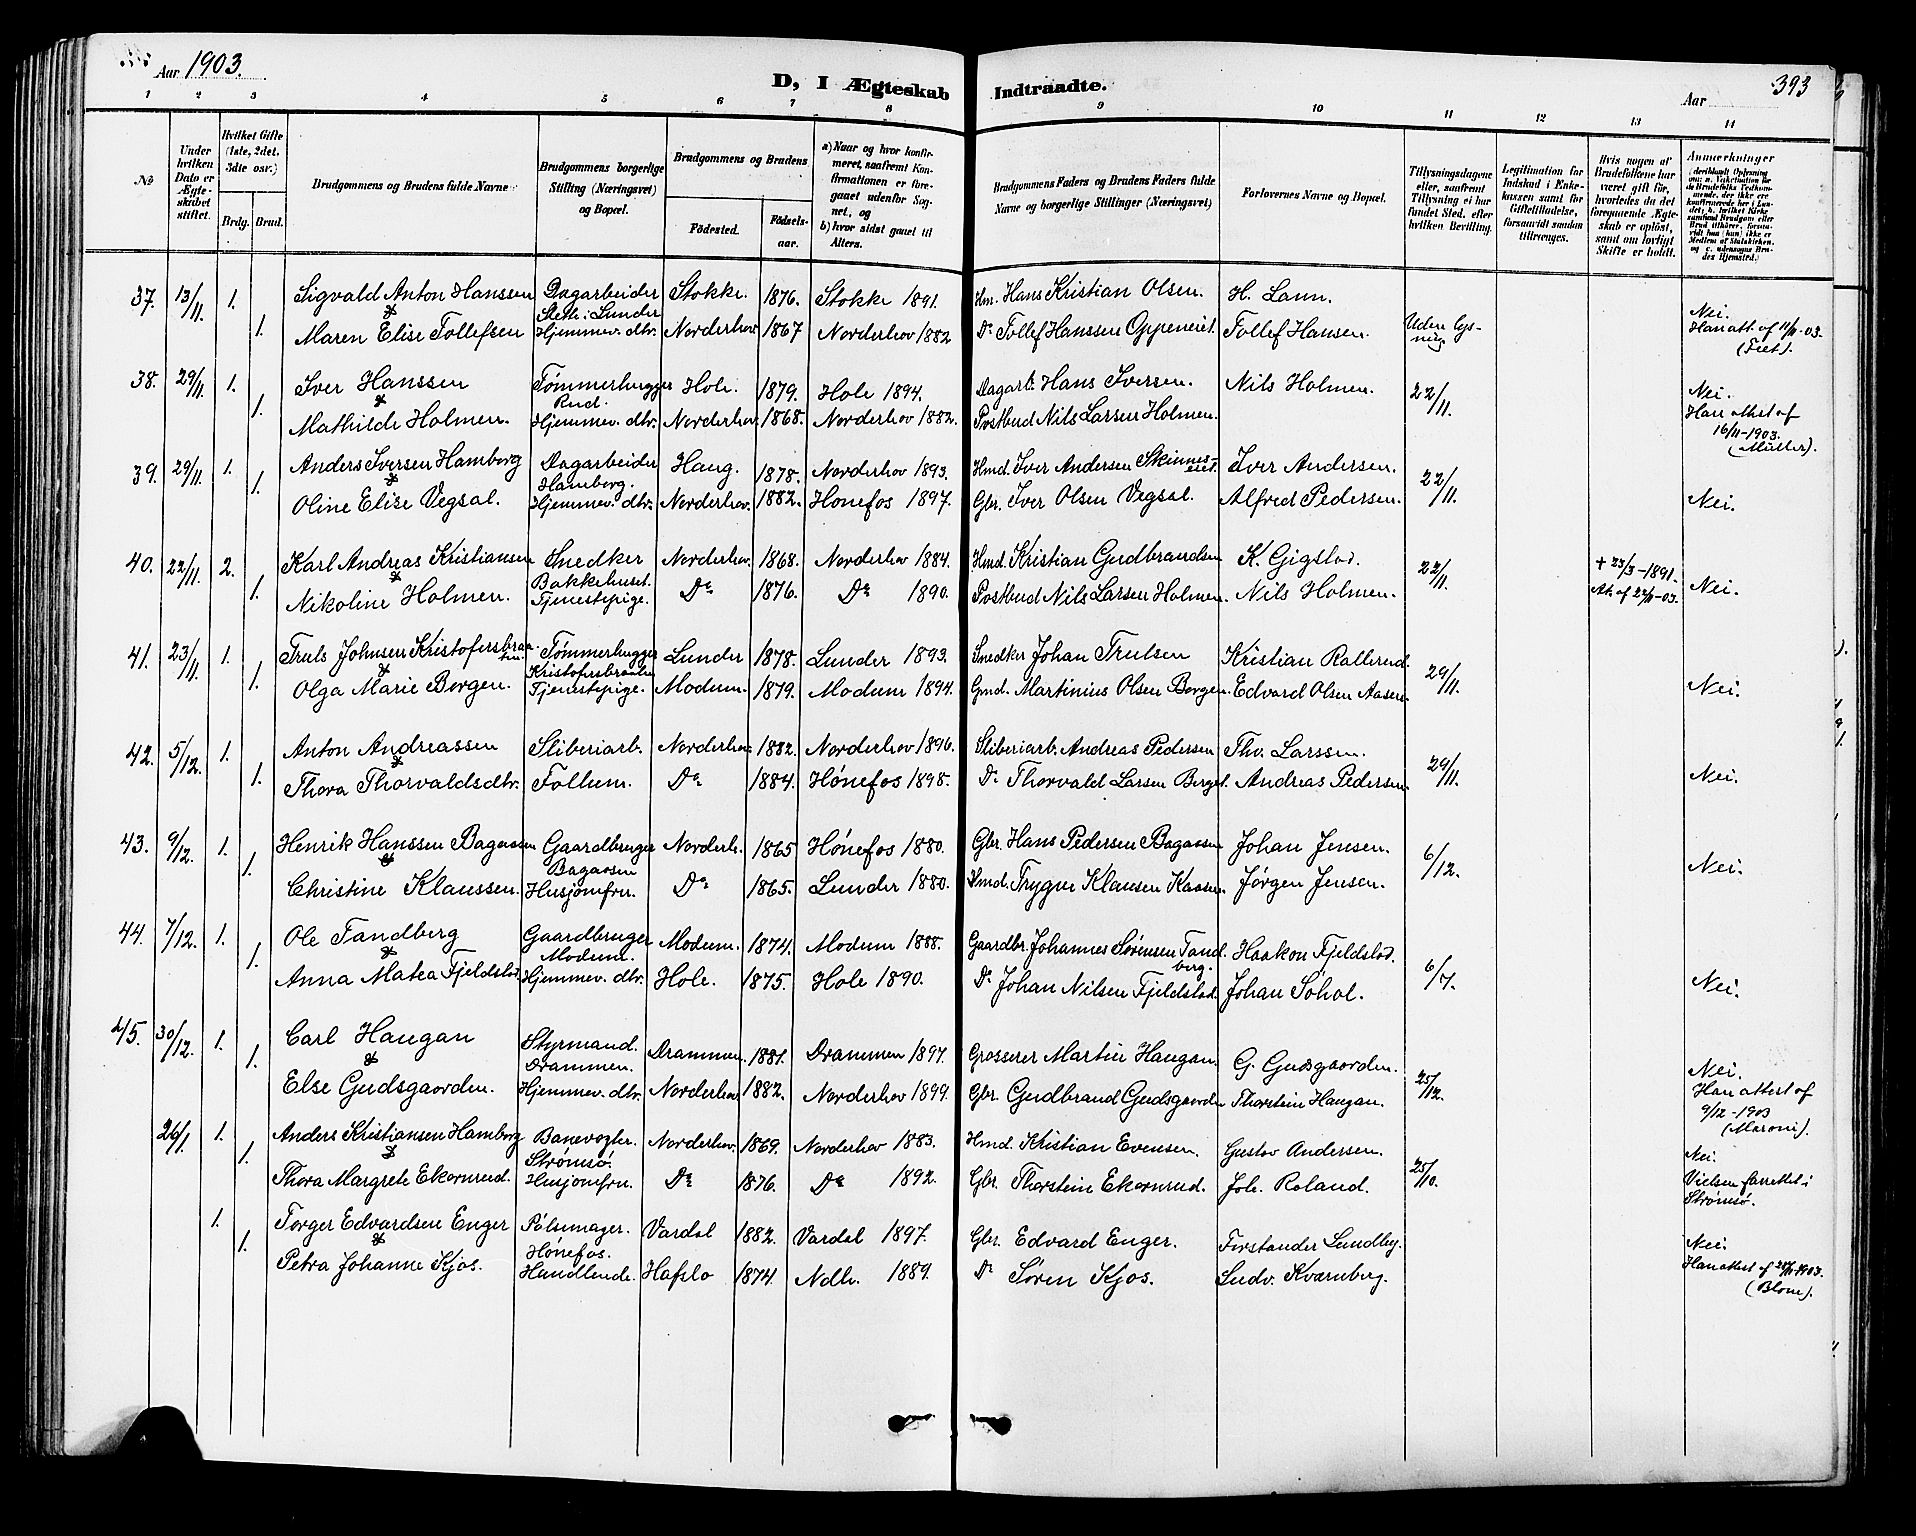 Aar 1903.
D, I Ægteskab Indtraadte.
Aar 393
1 2 3 4 5 6 7 8 9 10 11 12 13 14
No
Under hvilken Dato er Ægteskabet stiftet.
Hvilket Gifte (1ste, 2det, 3die osv.)
Brdg. Brud.
Brudgommens og Brudens fulde Navne
Brudgommens borgerlige Stilling (Næringsvei) og Bopæl.
Brudgommens og Brudens
Födested. Födselsaar.
a) Naar og hvor konfirmeret, saafremt Konfirmationen er foregaaet udenfor Sognet, og
b) hvor sidst gaaet til Alters.
Brudgommens Faders og Brudens Faders fulde Navne og borgerlige Stillinger (Næringsvei)
Forlovernes Navne og Bopæl.
Tillysningsdagene eller, saafremt Tillysning ei har fundet Sted, efter hvilken Bevilling.
Legitimation for Indskud i Enkekassen samt for Giftetilladelse, forsaavidt saadan tiltrænges.
Hvis nogen af Brudefolkene har været gift för, hvorledes da det foregaaende Ægteskab er oplöst, samt om lovligt Skifte er holdt.
Anmærkninger
37. 13/11. 1. Sigvald Anton Hanssen Dagarbeider Stokke. 1876. Stokke 1891. Hm. Hans Kristian Olsen. H. Lann.
& Lunder
1. Maren Elise Tollefsen Hjemmev. dtr. Norderhov 1867 Norderhov 1882 Do Tollef Hanssen Oppeneiet. Tollef Hansen. Uden lysning Nei.
Han att. af 11/11-03.
38. 29/11. 1. Iver Hanssen Tømmerhugger Hole. 1879. Hole 1894. Dagarb. Hans Iversen. Nils Holmen. 22/11. Nei.
& Rud.
1. Mathilde Holmen. Hjemmev. dtr. Norderhov. 1868. Norderhov 1882. Postbud Nils Larsen Holmen. Han attest af
16/11-1903.
(Müller).
39. 29/11. 1. Anders Iversen Hamborg Dagarbeider Haug. 1878. Norderhov 1893. Hmd. Iver Andersen Skinneseiet. Iver Andersen. 22/11.
& Hamborg.
1. Oline Elise Vegsal. Hjemmev. dtr. Norderhov. 1882. Hønefos 1897. Gbr. Iver Olsen Vegsal. Alfred Pedersen. Nei.
40. 22/11. 2. Karl Andreas Kristiansen Snedker Norderhov. 1868. Norderhov 1884. Hmd. Kristian Gudbrandsen K. Gigstad. 22/11. + 23/3-1891.
& Bakkehuset.
1. Nikoline Holmen. Tjenestepige. Do 1876. Do 1890. Postbud Nils Larsen Holmen. Nils Holmen. At. af 22/11-03. Nei.
41. 23/11. 1. Truls Johnsen Kristofersbraaten Tømmerhugger Lunder 1878. Lunder 1893. Snedker Johan Trulsen Kristian Rallerud. 29/11.
& Kristofersbraaten
1. Olga Marie Borgen. Tjenestepige. Modum. 1879. Modum 1894. Gmd. Martinius Olsen Borgen. Edvard Olsen Aasen. Nei.
42. 5/12. 1. Anton Andreassen Sliberiarb. Norderhov. 1882. Norderhov 1896. Sliberiarb. Andreas Pedersen Thv. Larssen. 29/11.
&
1. Thora Thorvaldsdtr. Follum. Do 1884. Hónefos 1898. Do Thorvald Larsen Berget. Andreas Pedersen. Nei.
43. 9/12. 1. Henrik Hanssen Bagaasen Gaardbruger Norderh. 1865 Hónefos 1880. Gbr. Hans Pedersen Bagaasen Johan Jensen. 6/12.
& Bagaasen
1. Christine Klaussen. Husjomfru. Do 1865. Lunder 1880. Hmd. Trygve Klausen Kaasen. Jørgen Jensen. Nei.
44. 7/12. 1. Ole Tandberg Gaardbruger Modum. 1874. Modum 1888. Gaardbr. Johannes Sørensen Tandberg. Haakon Fjeldstad.
& Modum.
1. Anna Matea Fjeldstad. Hjemmev. dtr. Hole. 1875. Hole 1890. Do Johan Nilsen Fjeldstad. Johan Sóhol. 6/7. Nei.
45. 30/12. 1. Carl Haugan Styrmand. Drammen. 1881. Drammen 1897. Grosserer Martin Haugan. G. Gudsgaarden.
& Drammen.
1. Else Gudsgaarden. Hjemmev. dtr. Norderhov 1882. Norderhov 1899. Gbr. Gudbrand Gudsgaarden Thorstein Haugan. 25/12. Nei.
Han attest af
9/12-1903
(Maroni).
26/1 1. Anders Kristiansen Hamborg Banevogter. Norderhov. 1869. Norderhov 1883. Hmd. Kristian Evensen. Gustav Andersen.
& Strómsó.
1. Thora Margrete Ekornrud. Husjomfru. Do 1876. Do 1892. Gbr. Thorstein Ekornrud. Joh. Roland. 25/10. Nei.
Vielsen forrettet i
Strómsó.
1. Torger Edvardsen Enger Pólsemager. Vardal 1882. Vardal 1897. Gbr. Edvard Enger. Forstander Lundby.
& Hónefos.
1. Petra Johanne Kjos. Handlende. Hafslo 1874. Ndh. 1889. Do Sóren Kjos. Ludv. Kvarnberg. Nei.
Han attest af 20/11-1903.
(Blom).